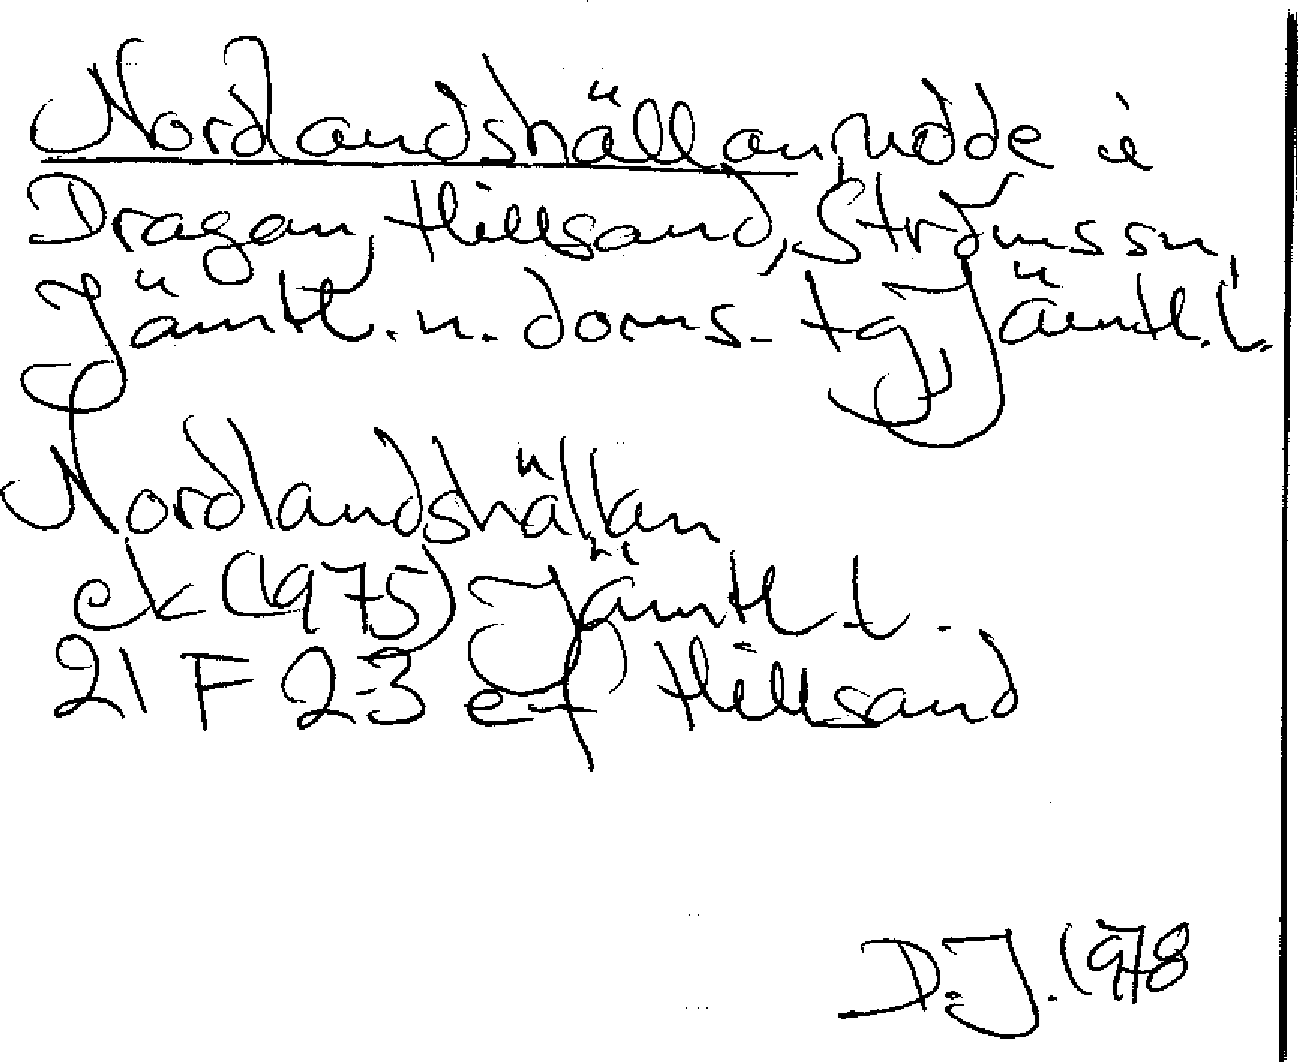 Nordlandshällan, udde i
Dragan, Hillsand, Ströms sn,
Jämtl. n. doms. tg, Jämtl. l.
Nordlandshällan
ek (1975) Jämtl l.
21 F 2-3 e-f Hillsand
D.J. 1978